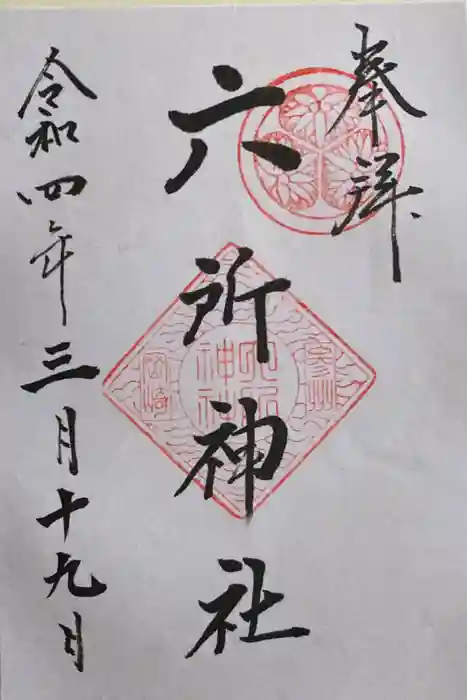 奉拝
六所神社
参州
六所
神社
岡崎
令和四年三月十九日